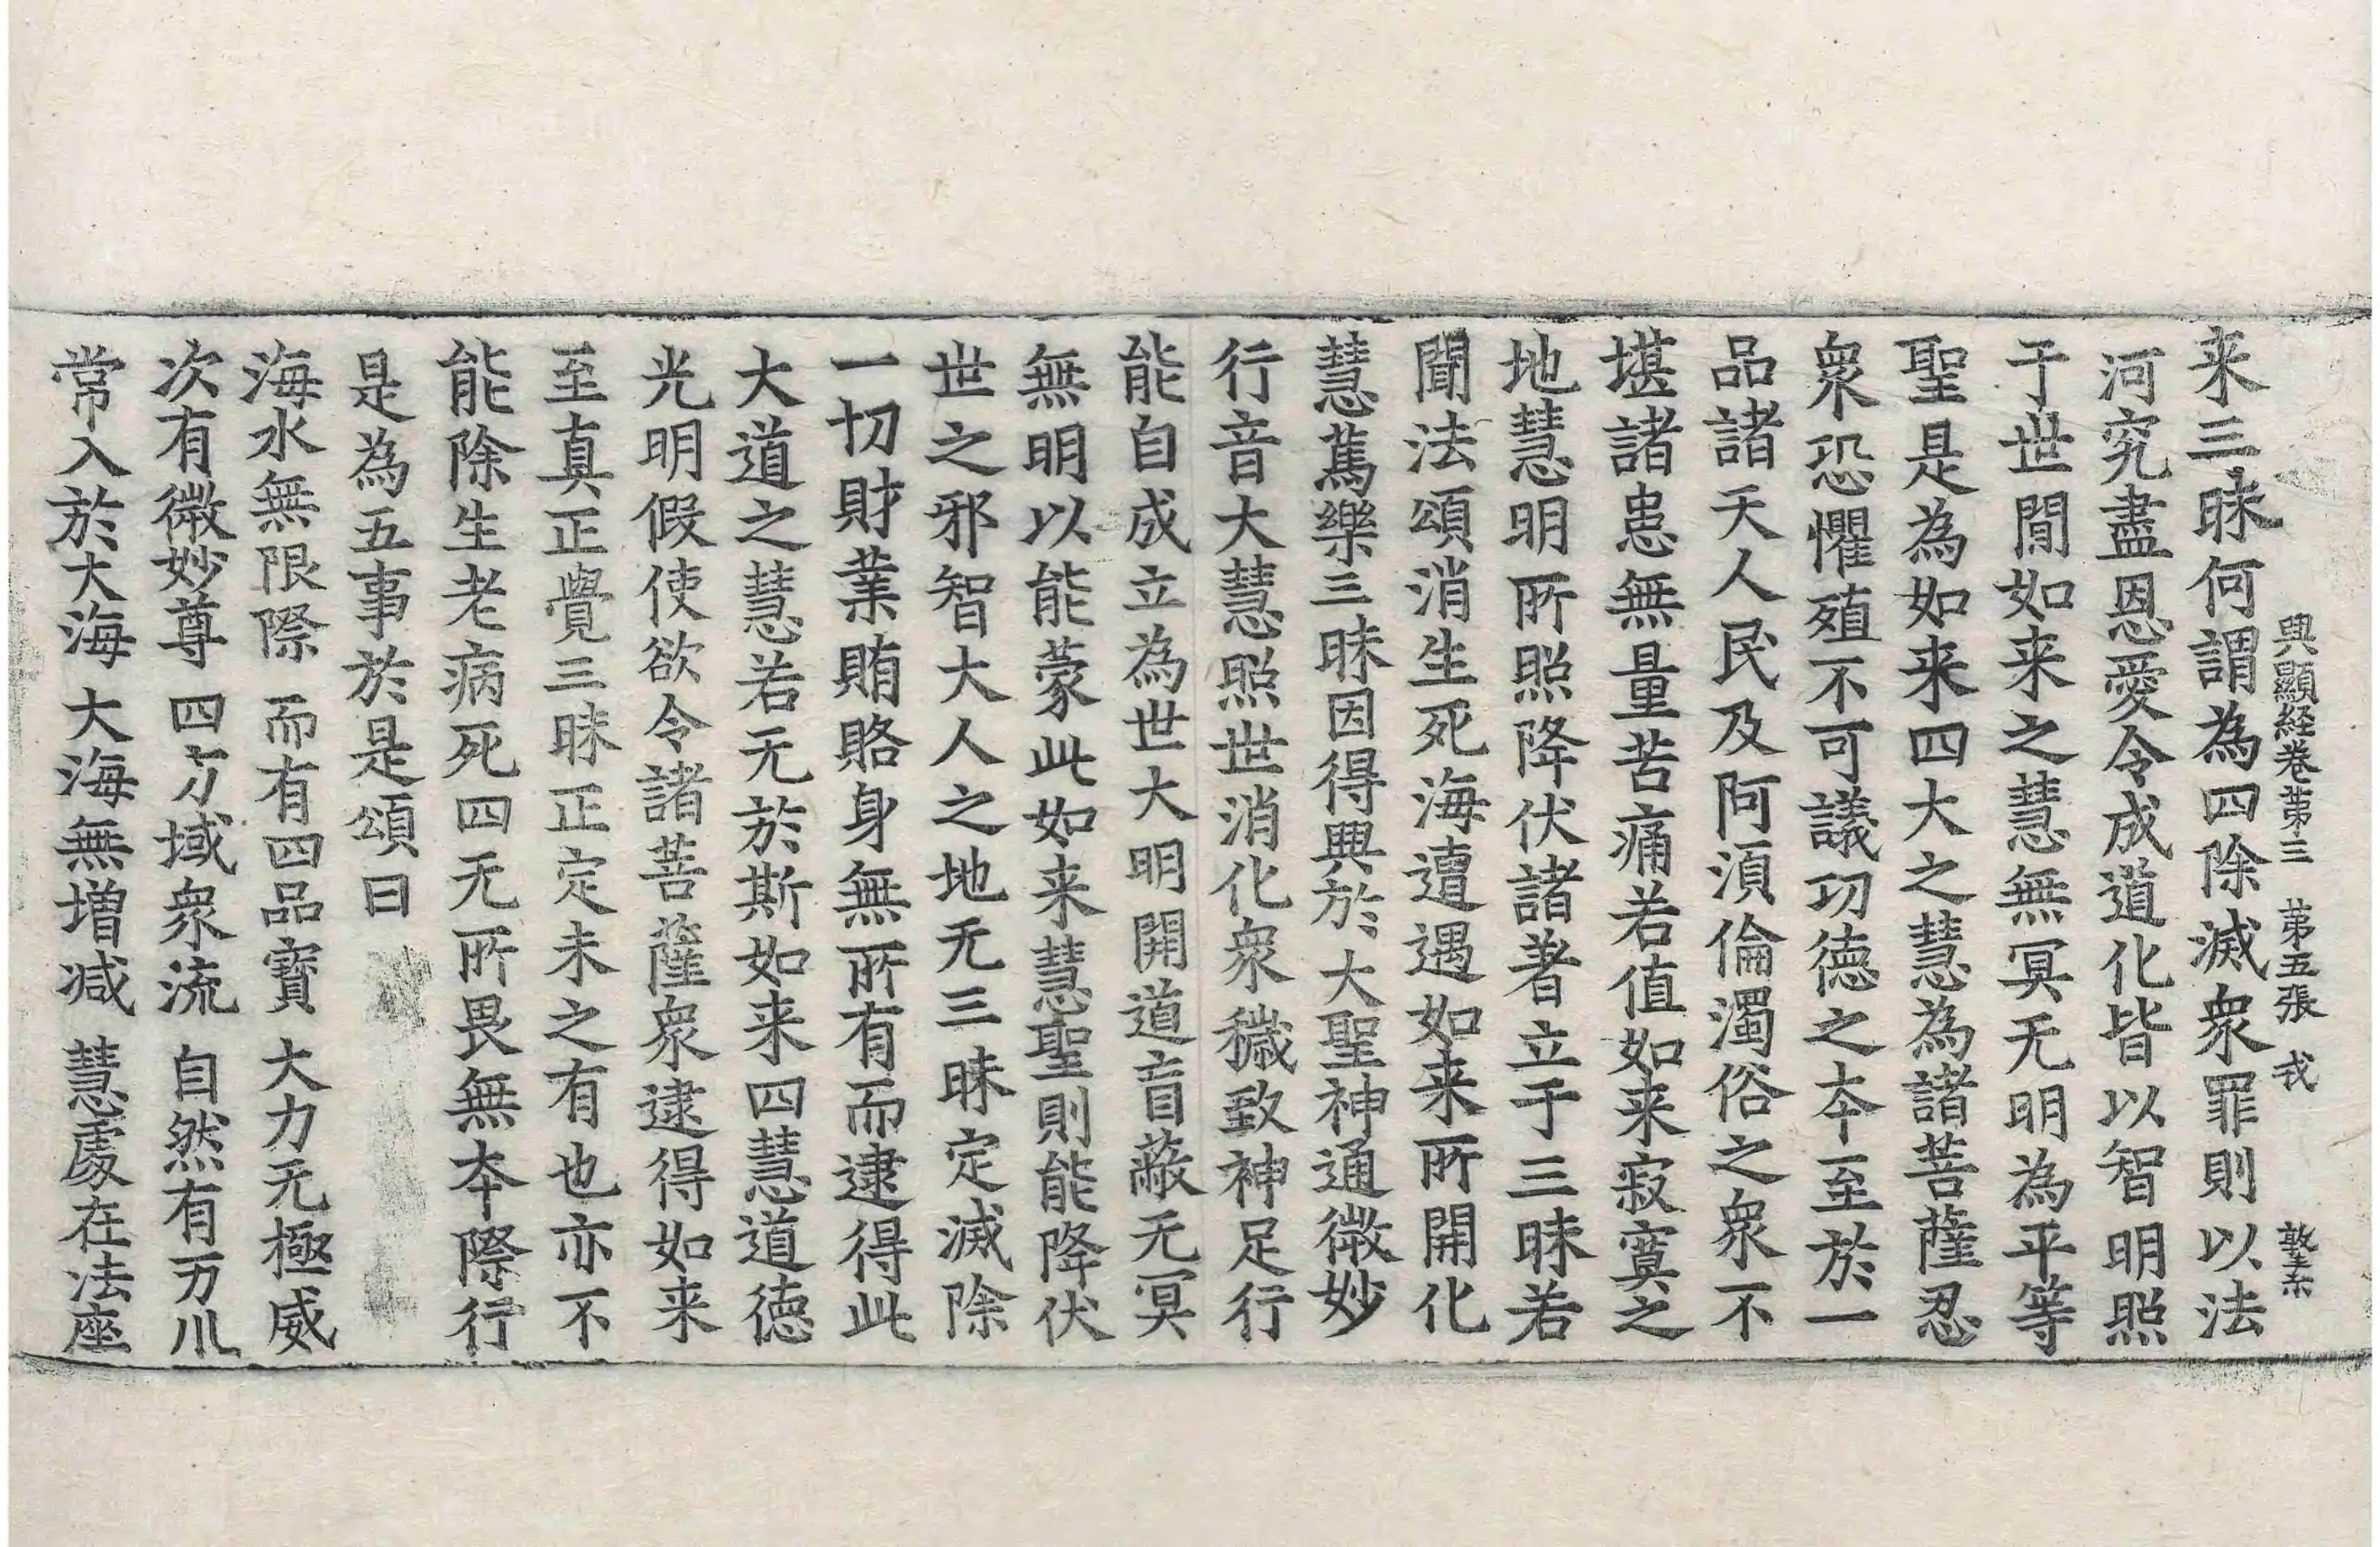 興顯経卷第三 第五張 戎
来三昧何謂為四除滅衆罪則以法
河究盡恩愛令成道化皆以智明照
于世閒如来之慧無冥无明為平等
聖是為如来四大之慧為諸菩薩忍
衆恐懼殖不可議功德之本至於一
品諸天人民及阿須倫濁俗之衆不
堪諸患無量苦痛若值如来寂寞之
地慧明所照降伏諸著立于三昧若
聞法頌消生死海遭遇如来所開化
慧篤樂三昧因得興於大聖神通微妙
行音大慧照世消化衆穢致神足行
能自成立為世大明開道盲蔽无冥
無明以能蒙此如来慧聖則能降伏
世之邪智大人之地无三昧定滅除
一切財業賄賂身無所有而逮得此
大道之慧若无於斯如来四慧道德
光明假使欲令諸菩薩衆逮得如来
至真正覺三昧正定未之有也亦不
能除生老病死四无所畏無本際行
是為五事於是頌曰
海水無限際 而有四品寶 大力无極威
次有微妙尊 四方域衆流 自然有万川
常入於大海 大海無増減 慧處在法座